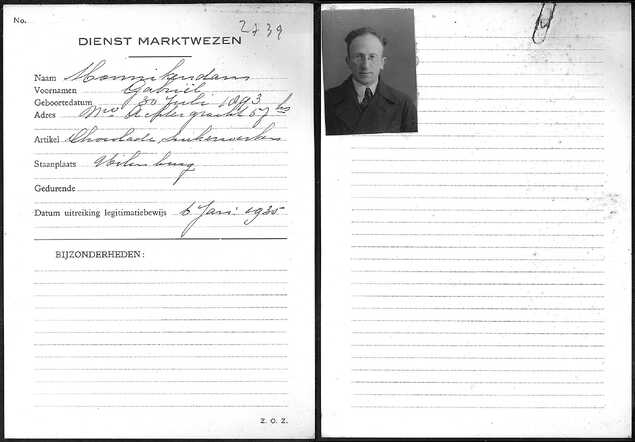 No. 2739
DIENST MARKTWEZEN
Naam Monnikendam
Voornamen Gabriël
Geboortedatum 30 Juli 1893
Adres Nwe Achtergracht 57 hs
Artikel Chocolade, suikerwerken
Staanplaats
Gedurende
Datum uitreiking legitimatiebewijs 6 Jan. 1935
BIJZONDERHEDEN:
Z. O. Z.